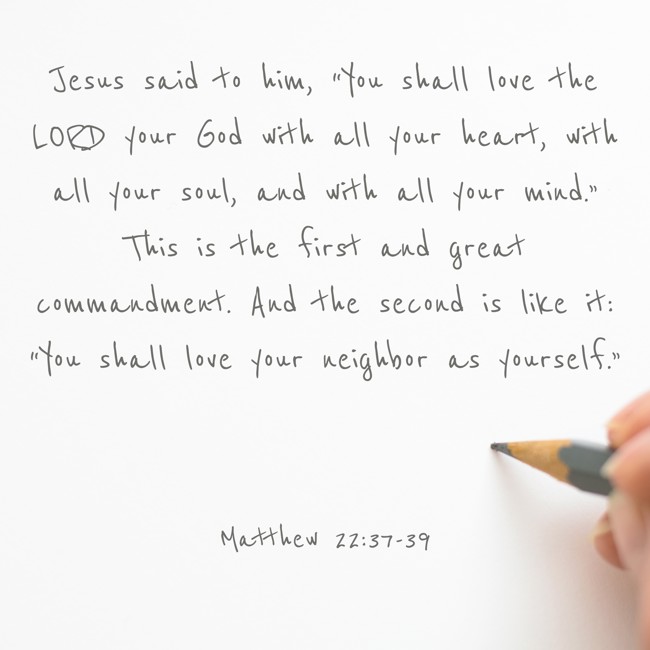 Jesus said to him, "You shall love the
LORD your God with all your heart, with
all your soul, and with all your mind."
This is the first and great
commandment. And the second is like it:
"You shall love your neighbor as yourself."
Matthew 22:37-39